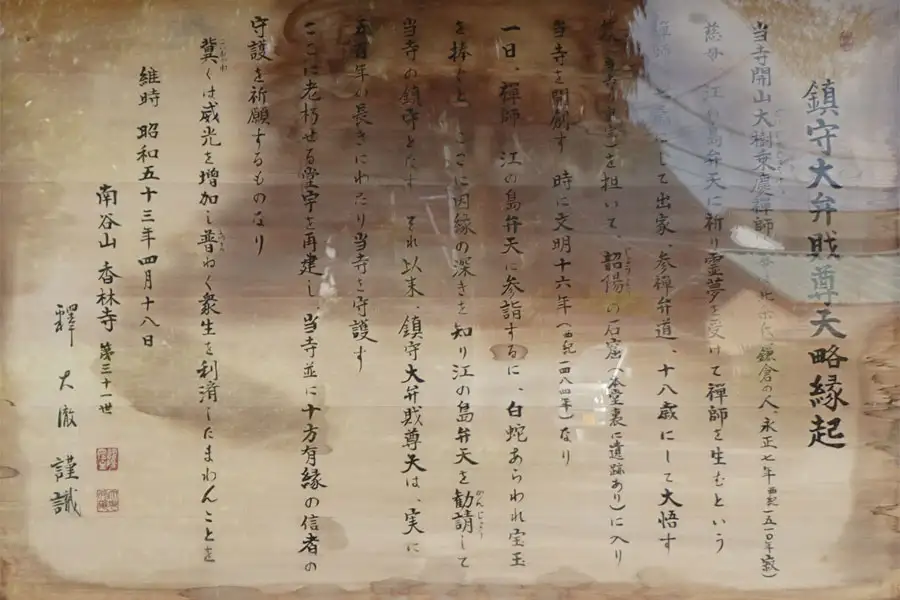 鎮守大弁財尊天略縁起
当寺開山大樹乗慶禅師 鎌倉の人、永正七年西紀一五一〇年寂)
慈母 江の島弁天に祈り霊夢を受けて禅師を生むという
にして出家、参禅弁道、十八歳にして大悟す
を担いて、韶陽の石窟(本堂裏に遺跡あり)に入り
当寺を開創す 時に文明十六年(西紀一四八四年)なり
一日、禅師 江の島弁天に参詣するに、白蛇あらわれ宝玉
を捧ぐと ここに因縁の深きを知り江の島弁天を勧請して
当寺の鎮守となす それ以来 鎮守大弁財尊天は、実に
五百年の長きにわたり当寺を守護す
ここに老朽せる堂宇を再建し、当寺並に十方有縁の信者の
守護を祈願するものなり
冀くは威光を増加し普ねく衆生を利済したまわんことを
維時 昭和五十三年四月十八日
南谷山 香林寺 第三十一世
釋 大徹 謹識